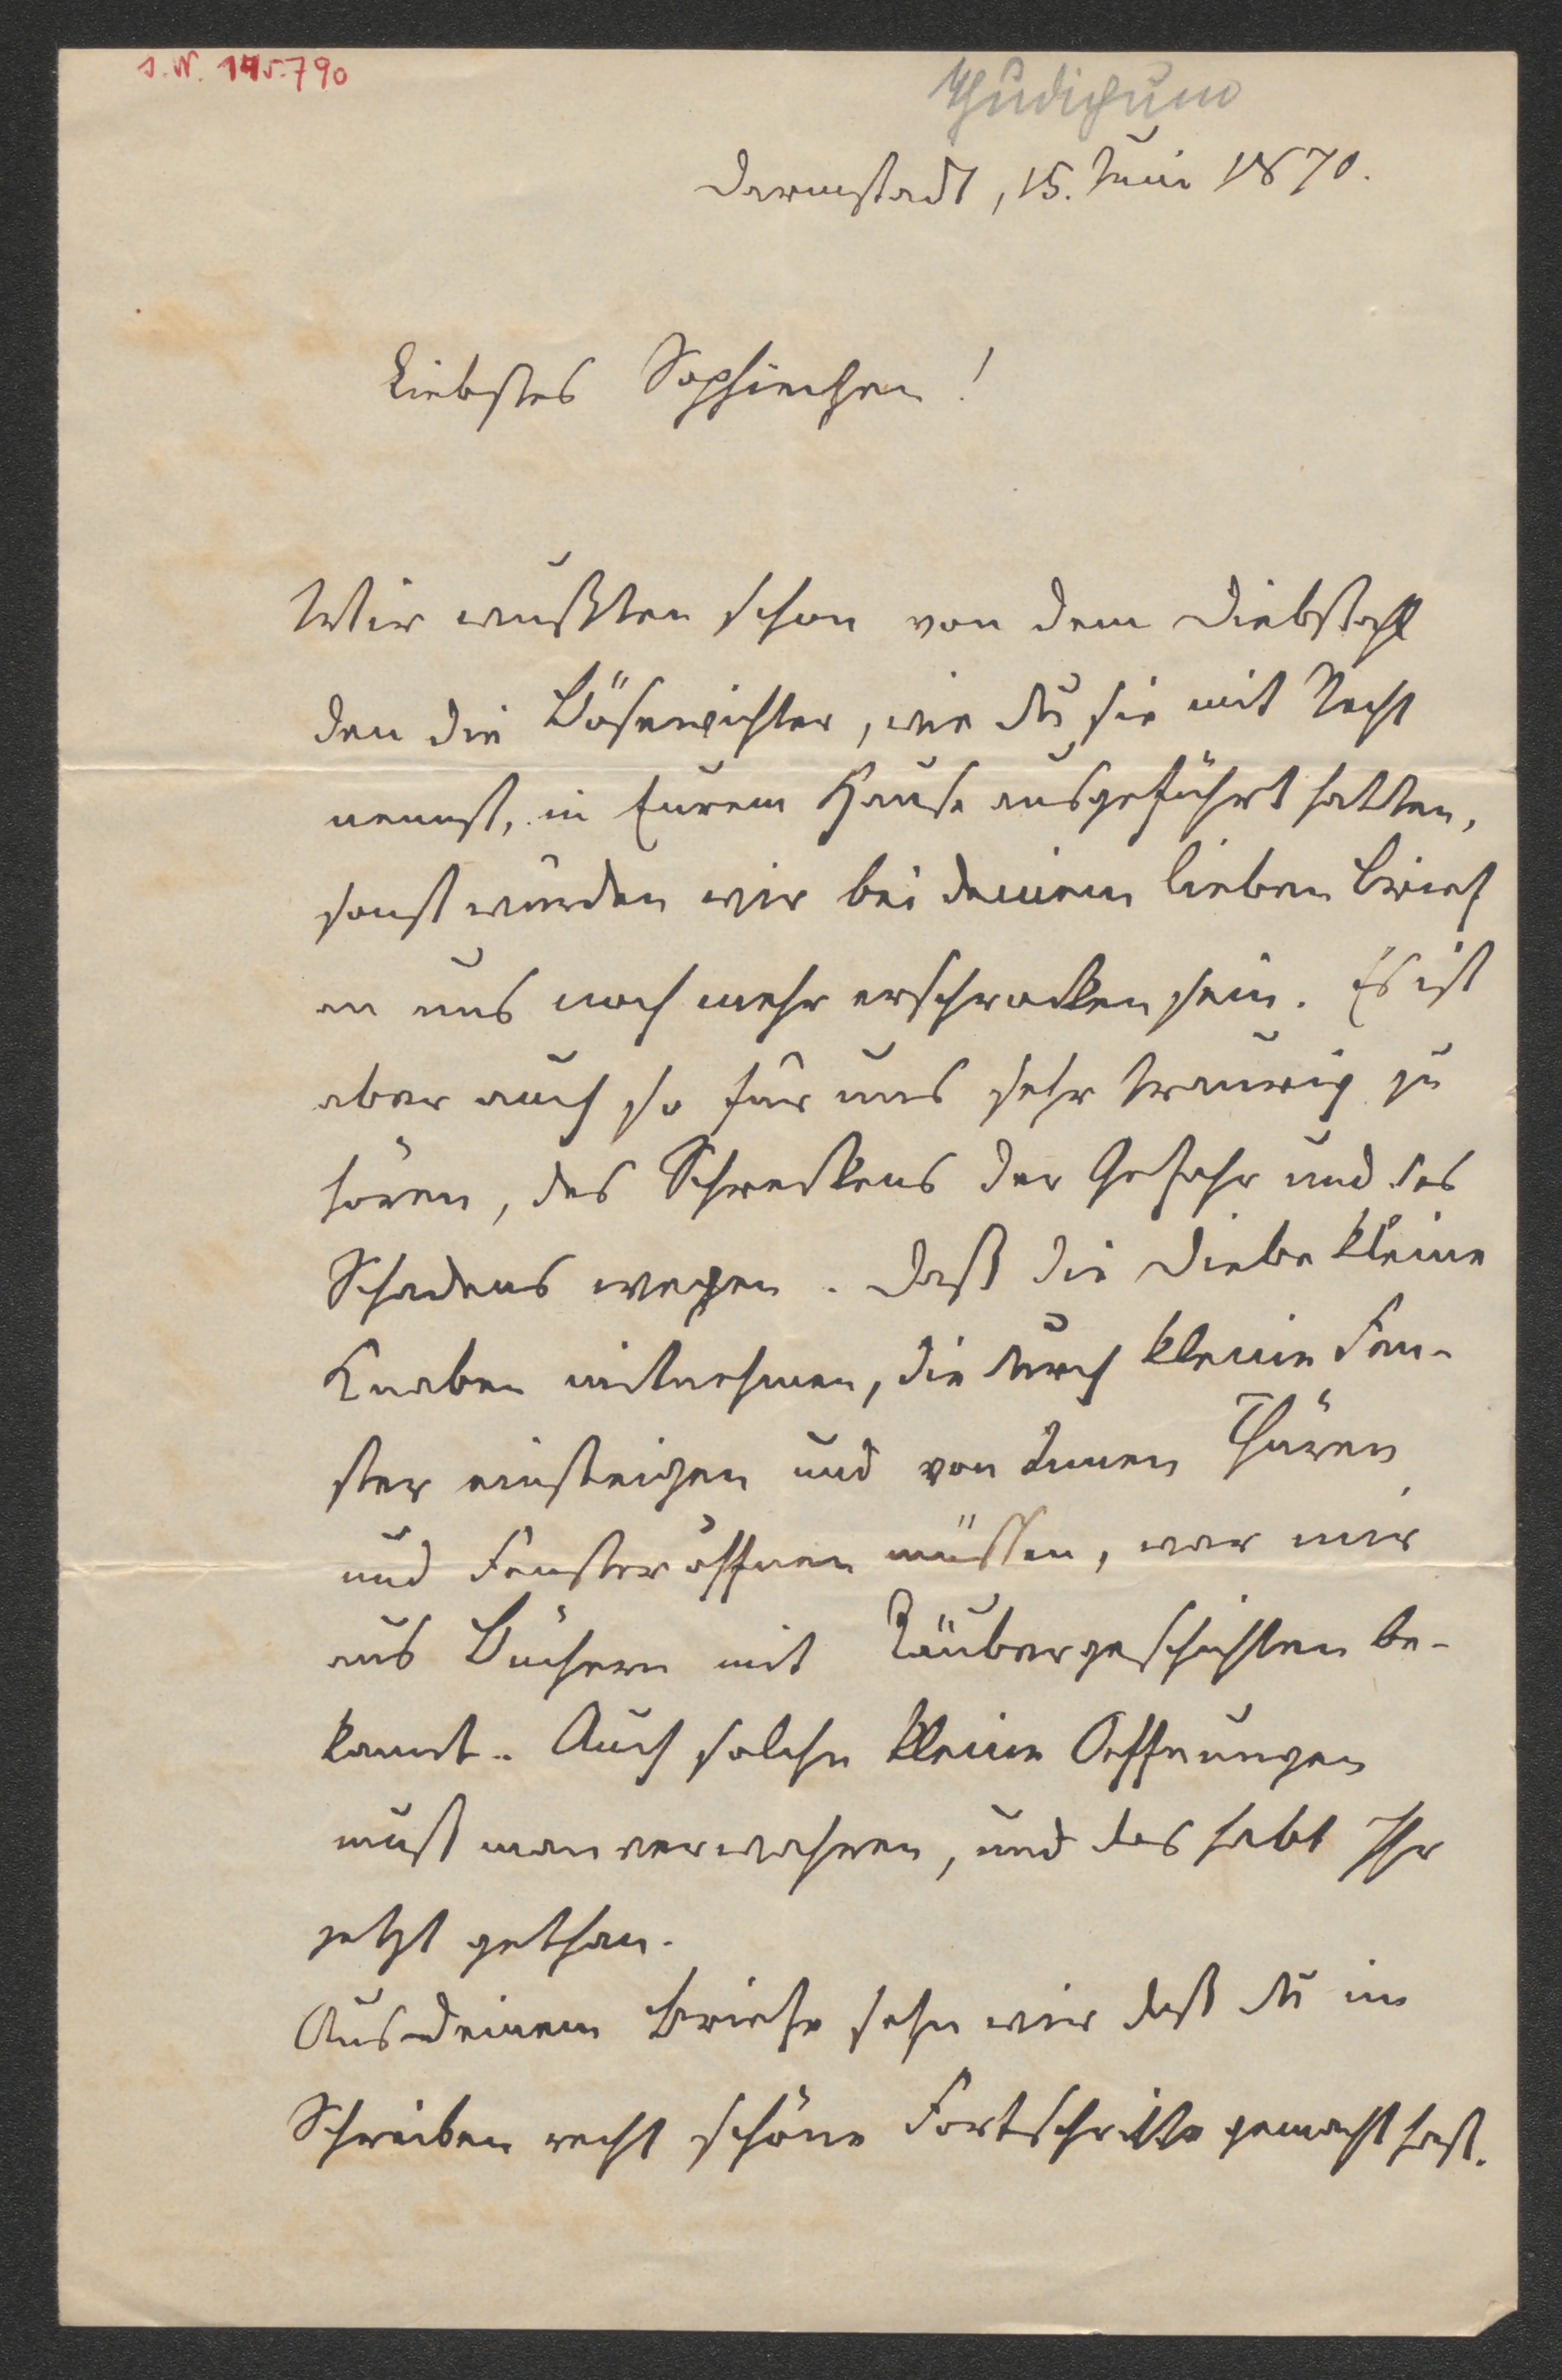 I.N. 145.790
Thudichum
Darmstadt, 15. Juni 1870.
Liebstes Sophiechen!
Wir wußten schon von dem Diebstahl
den die Bösewichter, wie Du sie mit Recht
nennst, in Eurem Hause ausgeführt hatten,
sonst würden wir bei deinem lieben Brief
an uns noch mehr erschrocken sein. Es ist
aber auch so für uns sehr traurig zu
hören, des Schreckens der Gefahr und des
Schadens wegen. Daß die Diebe kleine
Knaben mitnehmen, die durch kleine Fen-
ster einsteigen und von Innen Thüren
und Fenster öffnen müssen, war mir
aus Büchern mit Räubergeschichten be-
kannt. Auch solche kleine Oeffnungen
muß man verwahren, und das habt Ihr
jetzt gethan.
Aus Deinem Briefe sehn wir daß Du im
Schreiben recht schöne Fortschritte gemacht hast.